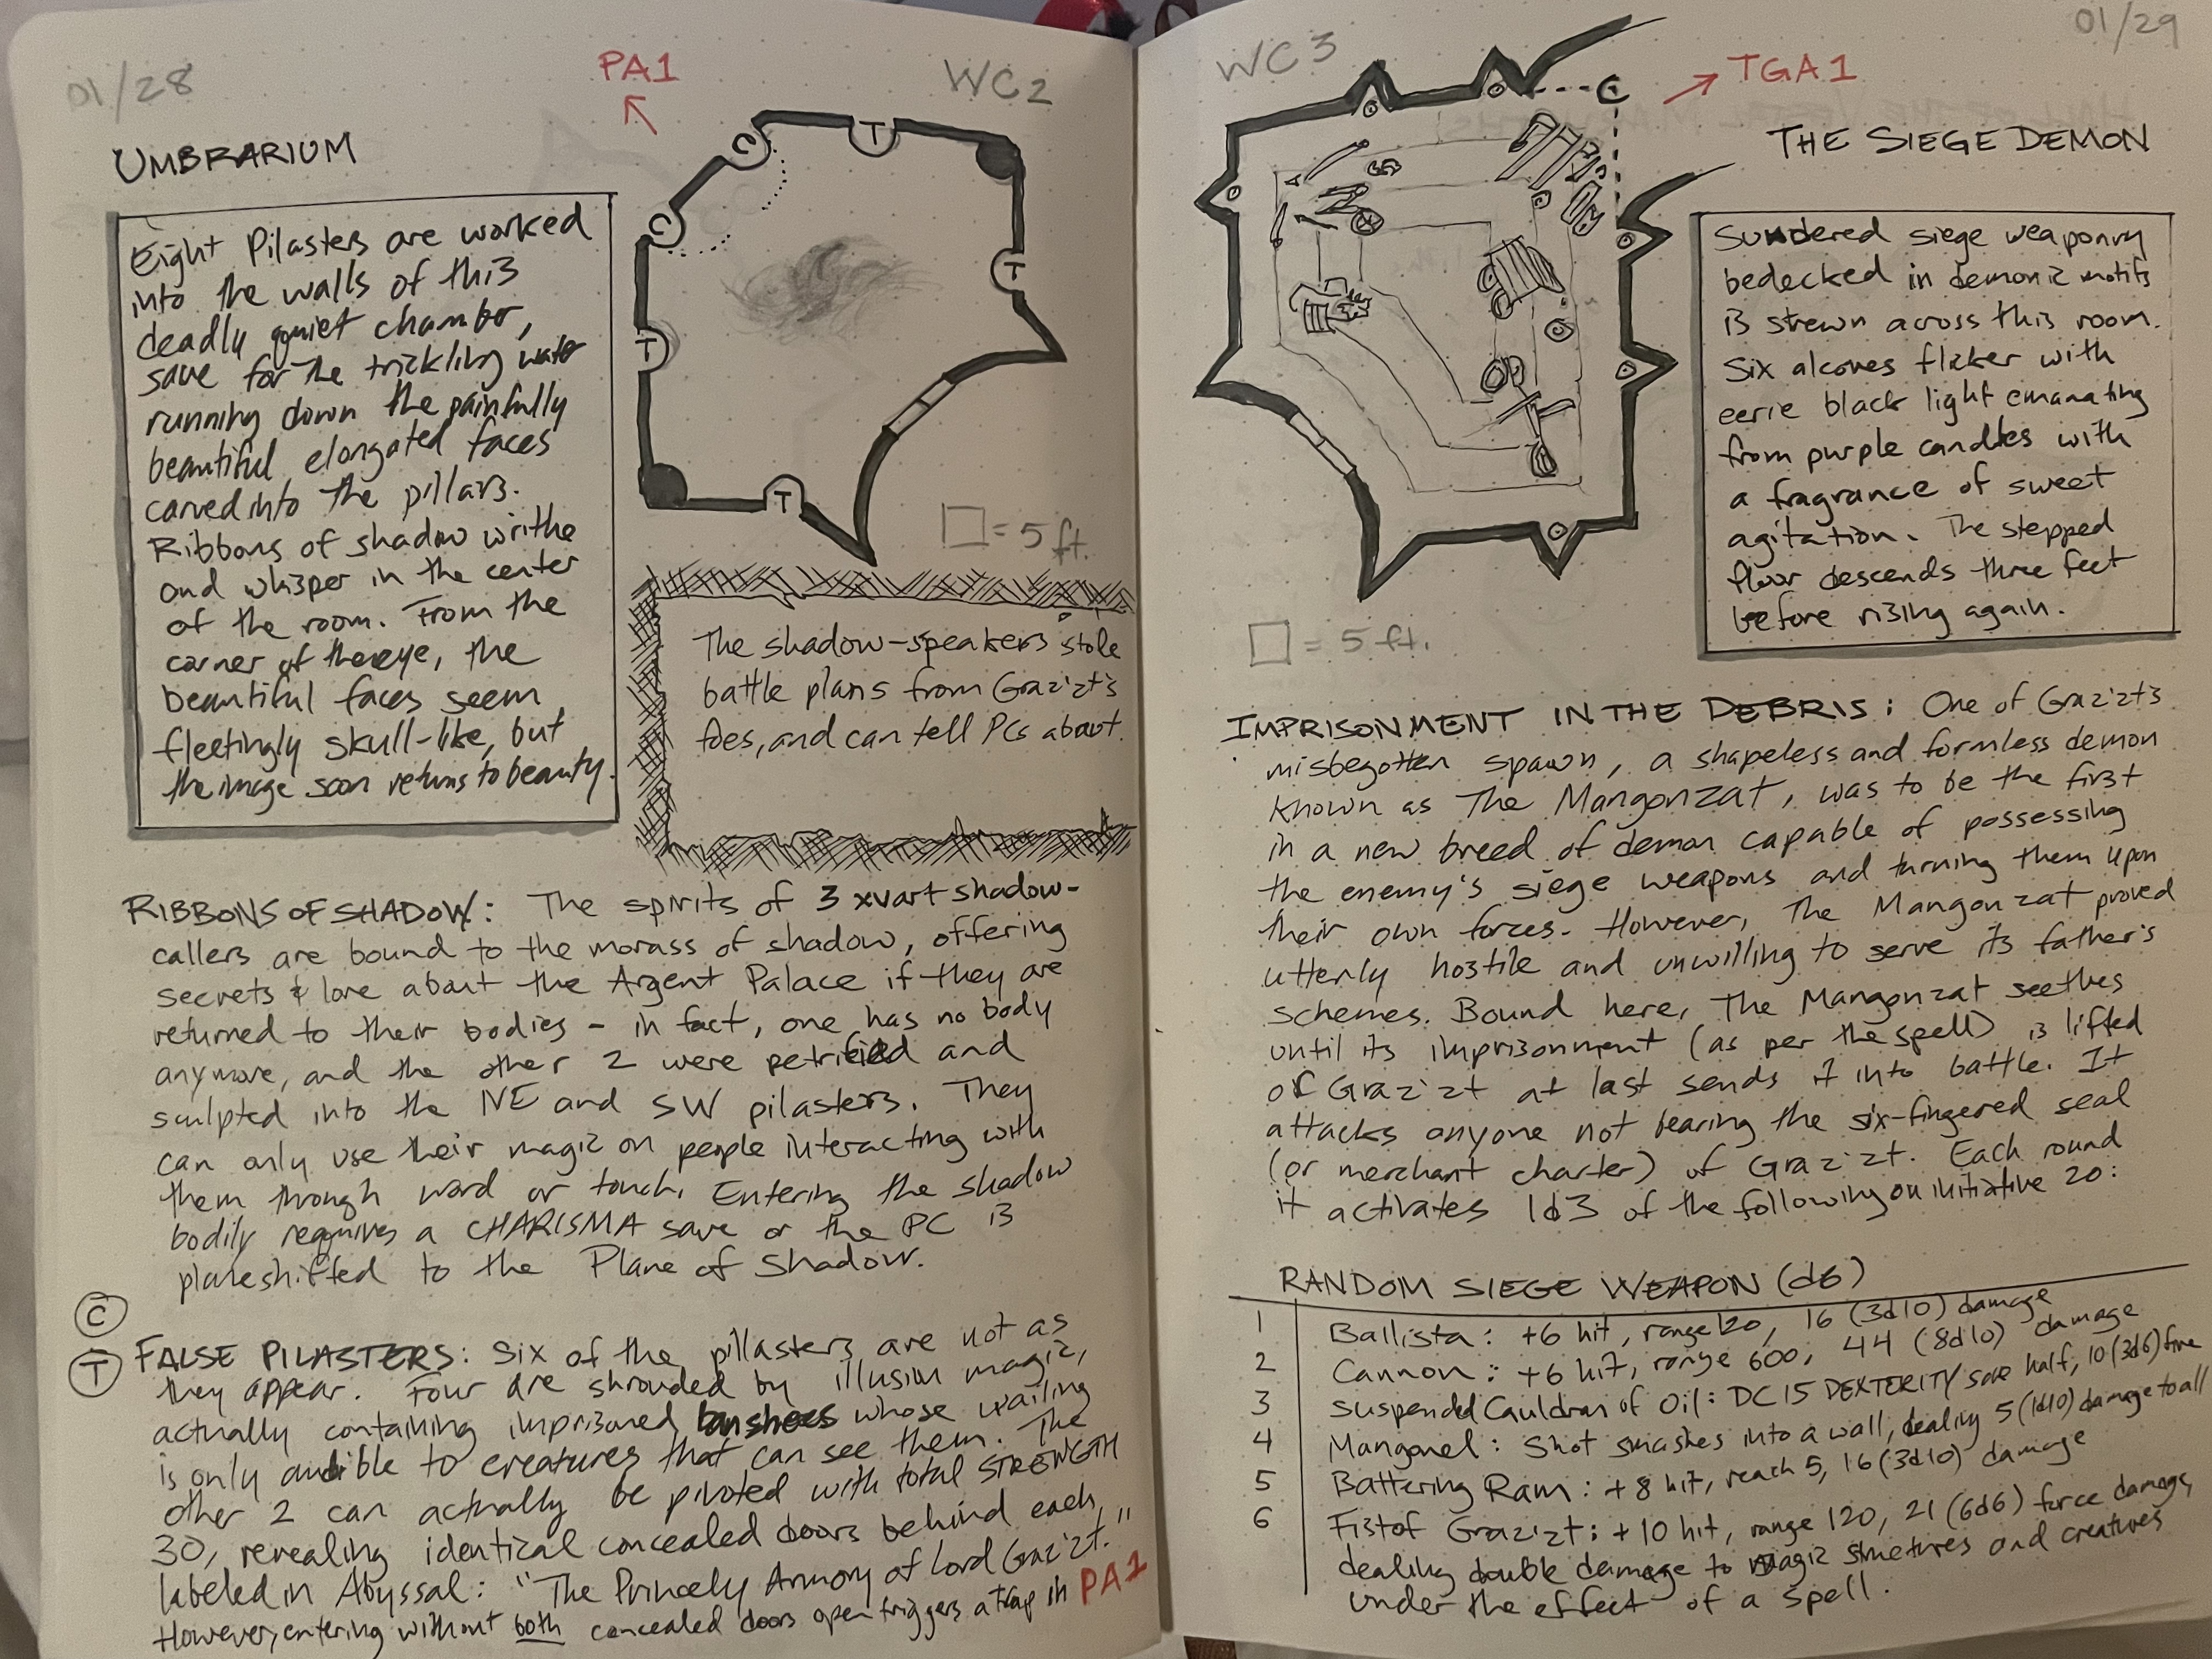 01/28
PA1
WC2
UMBRARIUM
Eight Pilasters are worked
into the walls of this
deadly quiet chamber,
save for the trickling water
running down the painfully
beautiful elongated faces
carved into the pillars.
Ribbons of shadow writhe
and whisper in the center
of the room. From the
corner of the eye, the
beautiful faces seem
fleetingly skull-like, but
the image soon returns to beauty.
C
T
C
T
T
T
□ = 5 ft.
The shadow-speakers stole
battle plans from Graz'zt's
foes, and can tell PCs about.
RIBBONS OF SHADOW: The spirits of 3 xvart shadow-
callers are bound to the morass of shadow, offering
secrets & lore about the Argent Palace if they are
returned to their bodies - in fact, one has no body
anymore, and the other 2 were petrified and
sculpted into the NE and SW pilasters. They
can only use their magic on people interacting with
them through word or touch. Entering the shadow
bodily requires a CHARISMA save or the PC is
planeshifted to the Plane of Shadow.
C
T
FALSE PILASTERS: Six of the pillasters are not as
they appear. Four are shrouded by illusion magic,
actually containing imprisoned banshees whose wailing
is only audible to creatures that can see them. The
other 2 can actually be pivoted with total STRENGTH
30, revealing identical concealed doors behind each,
labeled in Abyssal: "The Princely Armory of Lord Graz'zt."
However, entering without both concealed doors open triggers a trap in PA1
WC3
01/29
TGA1
C
THE SIEGE DEMON
Sundered siege weaponry
bedecked in demonic motifs
is strewn across this room.
Six alcoves flicker with
eerie black light emanating
from purple candles with
a fragrance of sweet
agitation. The stepped
floor descends three feet
before rising again.
□ = 5 ft.
IMPRISONMENT IN THE DEBRIS: One of Graz'zt's
misbegotten spawn, a shapeless and formless demon
known as The Mangonzat, was to be the first
in a new breed of demon capable of possessing
the enemy's siege weapons and turning them upon
their own forces. However, The Mangonzat proved
utterly hostile and unwilling to serve its father's
schemes. Bound here, The Mangonzat seethes
until its imprisonment (as per the spell) is lifted
or Graz'zt at last sends it into battle. It
attacks anyone not bearing the six-fingered seal
(or merchant charter) of Graz'zt. Each round
it activates 1d3 of the following on initiative 20:
RANDOM SIEGE WEAPON (d6)
1 Ballista: +6 hit, range 120, 16 (3d10) damage
2 Cannon: +6 hit, range 600, 44 (8d10) damage
3 Suspended Cauldron of Oil: DC 15 DEXTERITY save half, 10 (3d6) fire
4 Mangonel: Shot smashes into a wall, dealing 5 (1d10) damage to all
5 Battering Ram: +8 hit, reach 5, 16 (3d10) damage
6 Fist of Graz'zt: +10 hit, range 120, 21 (6d6) force damage,
dealing double damage to magic structures and creatures
under the effect of a spell.